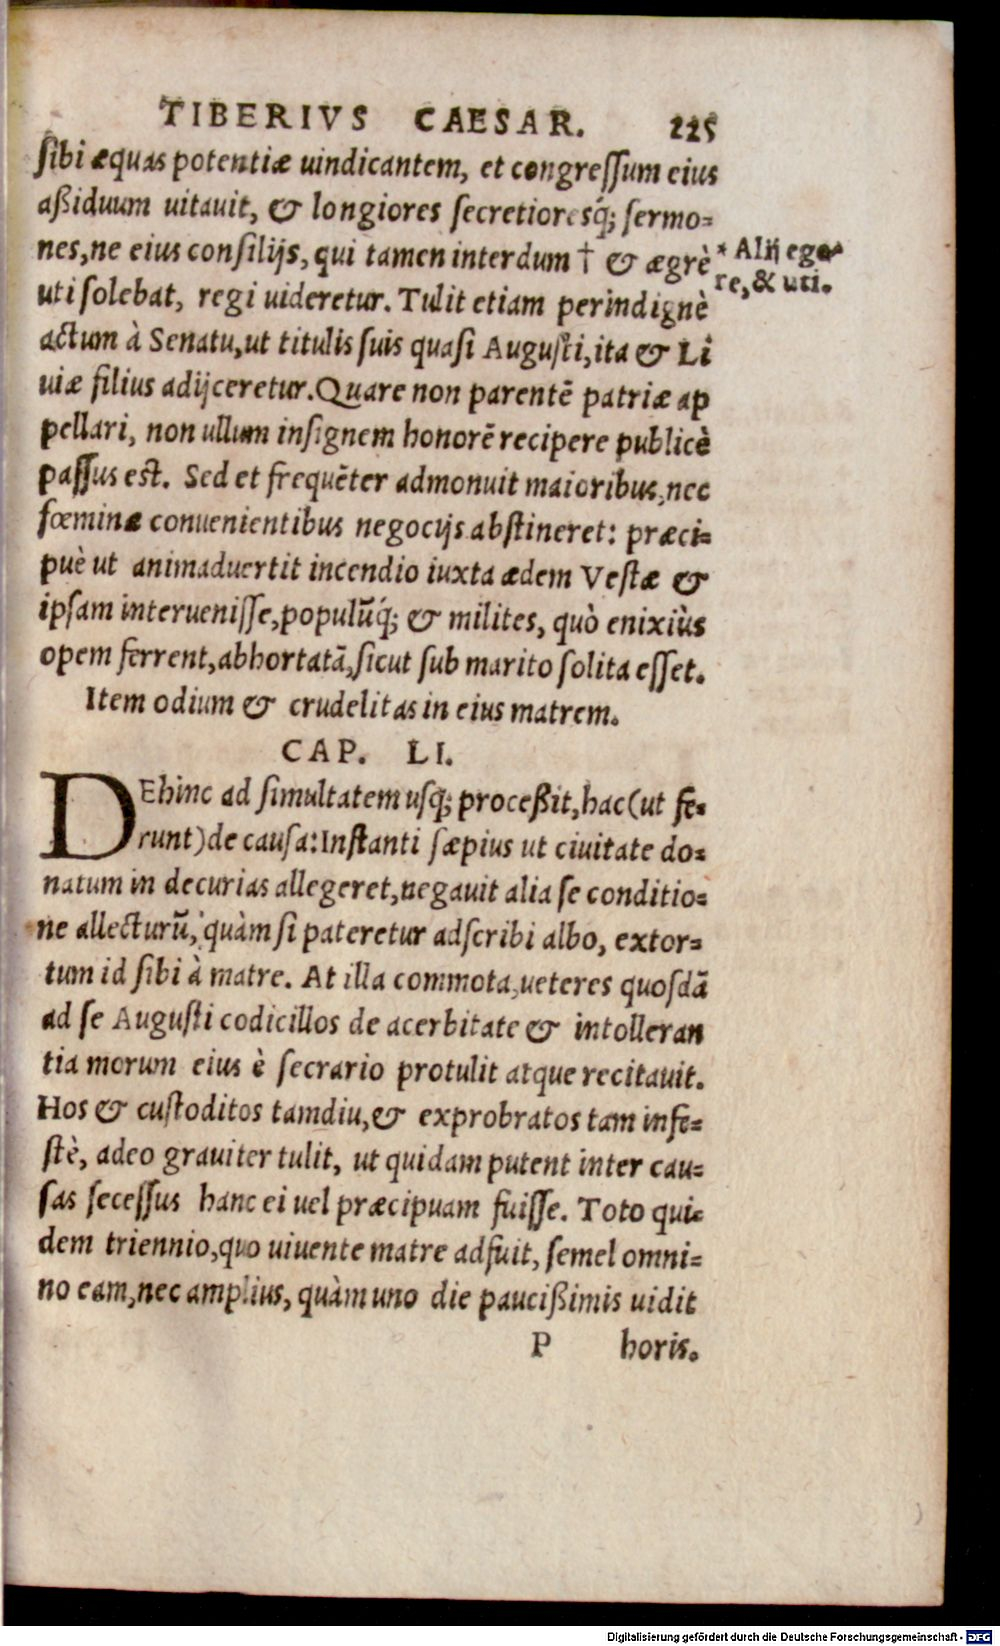 TIBERIVS CAESAR. 225
sibi æquas potentiæ uindicantem, et congressum eius
aßiduum uitauit, & longiores secretioresq́; sermo=
nes, ne eius consilijs, qui tamen interdum † & ægrè
* Alij ege-
re, & uti.
uti solebat, regi uideretur. Tulit etiam perindignè
actum à Senatu, ut titulis suis quasi Augusti, ita & Li
uiæ filius adijceretur. Quare non parentē patriæ ap
pellari, non ullum insignem honorē recipere publicè
passus est. Sed et frequēter admonuit maioribus, nec
fœminæ conuenientibus negocijs abstineret: præci=
puè ut animaduertit incendio iuxta ædem Vestæ &
ipsam interuenisse, populūq́; & milites, quò enixiùs
opem ferrent, abhortatā, sicut sub marito solita esset.
Item odium & crudelitas in eius matrem.
CAP. LI.
DEhinc ad simultatem usq; proceßit, hac (ut fe=
runt) de causa: Instanti sæpius ut ciuitate do=
natum in decurias allegeret, negauit alia se conditio=
ne allecturū, quàm si pateretur adscribi albo, extor=
tum id sibi à matre. At illa commota, ueteres quosdā
ad se Augusti codicillos de acerbitate & intolleran
tia morum eius è secrario protulit atque recitauit.
Hos & custoditos tamdiu, & exprobratos tam infe=
stè, adeo grauiter tulit, ut quidam putent inter cau=
sas secessus hanc ei uel præcipuam fuisse. Toto qui=
dem triennio, quo uiuente matre adfuit, semel omni=
no eam, nec amplius, quàm uno die paucißimis uidit
P horis.
Digitalisierung gefördert durch die Deutsche Forschungsgemeinschaft - DFG